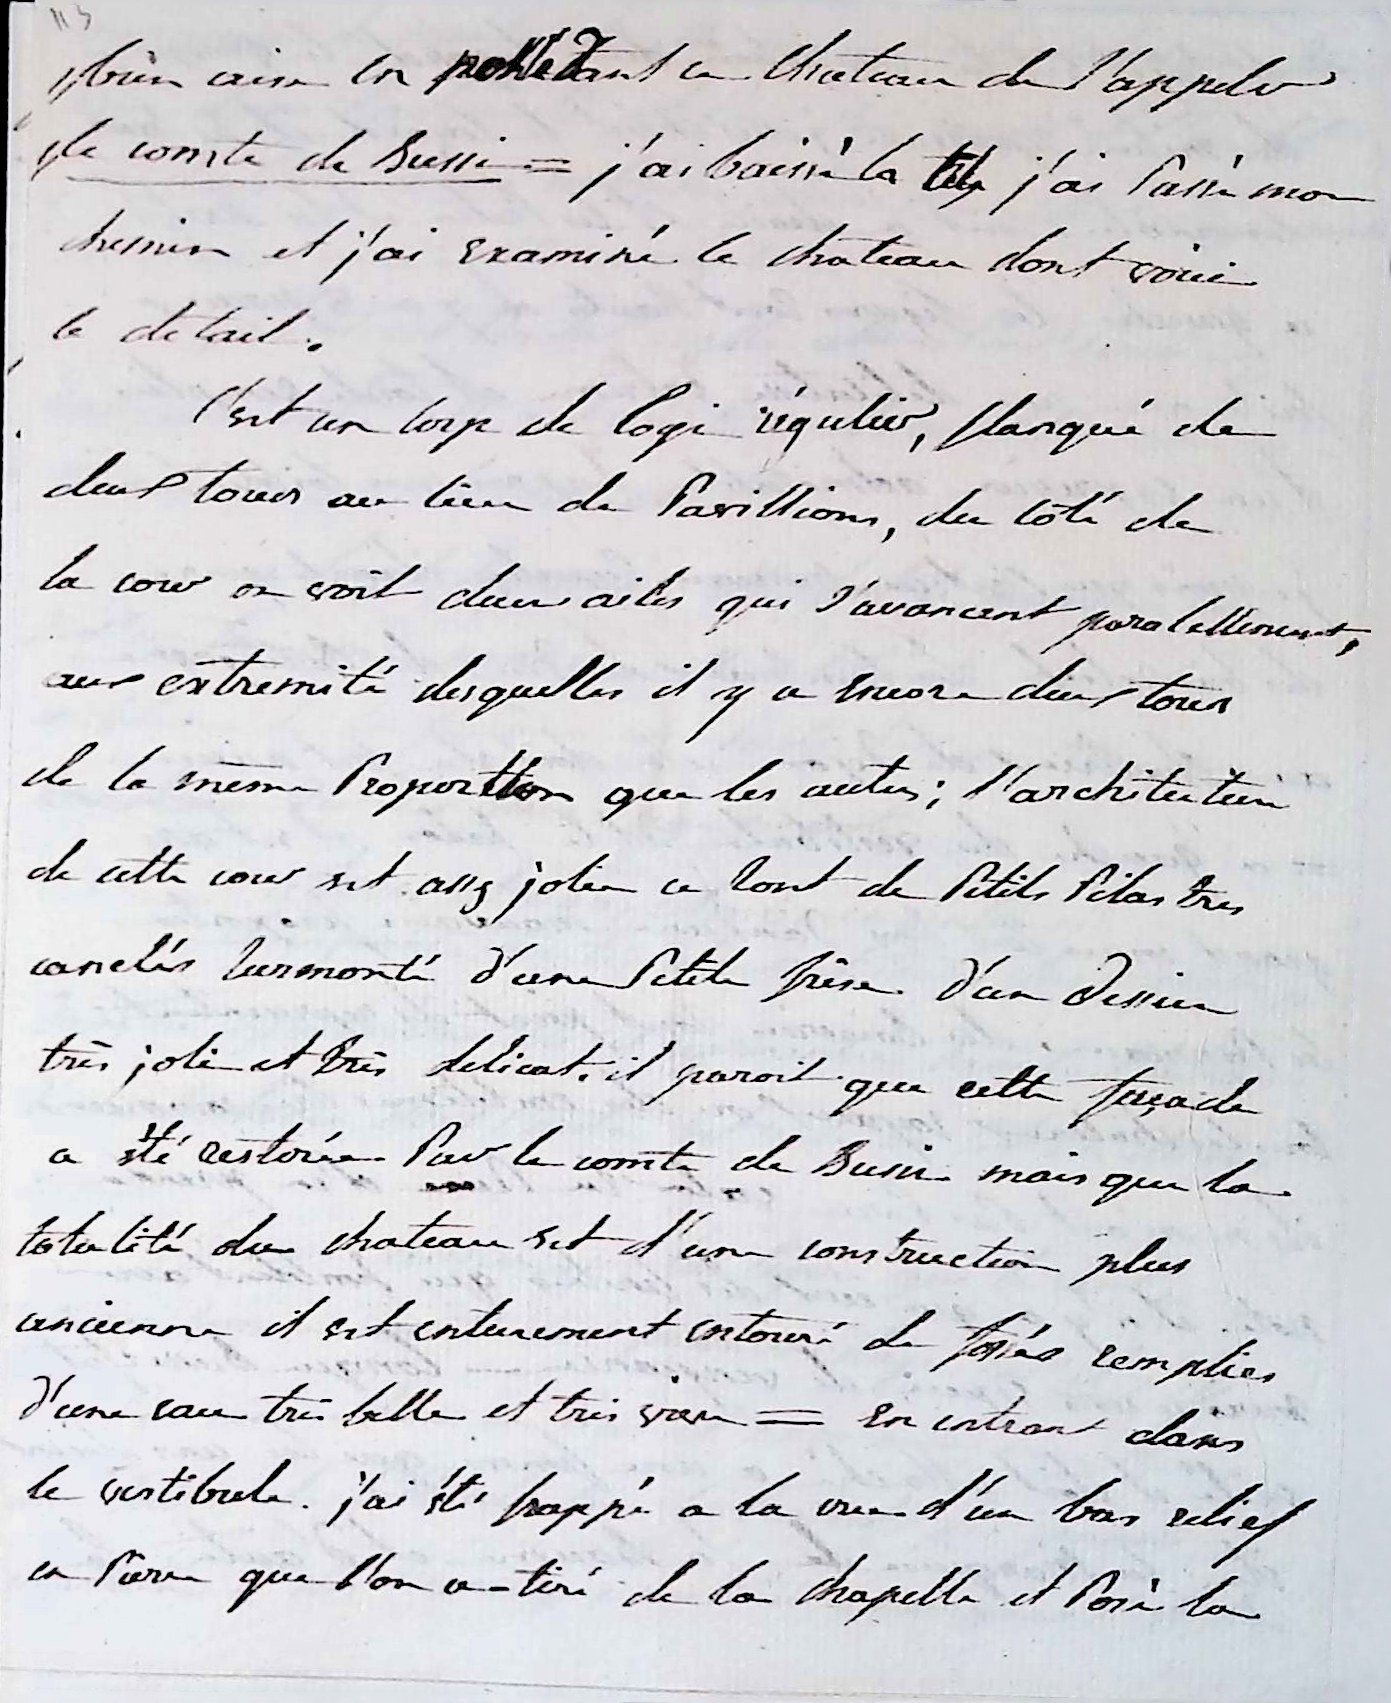 113
bien aise en possedant ce chateau de s'appeler
le comte de Bussi = j'ai baissé la tête j'ai passé mon
chemin et j'ai examiné le chateau dont voici
le detail.
C'est un corp de logi régulier, flanqué de
deux tours au lieu de Pavillions, du côté de
la cour on voit deux ailes qui s'avancent paralellement,
aux extremité desquelles il y a encore deux tours
de la même Proportion que les autres; l'architecture
de cette cour est assz jolie ce sont de Petits Pilastres
canelés surmonté d'une Petite frise d'un dessein
très joli et très delicat. il paroit que cette façade
a été restorée Par le comte de Bussi mais que la
totalité du chateau est d'une construction plus
ancienne il est entierement entouré de fossés remplies
d'une eau très belle et très vive = en entrant dans
le vestibule. j'ai été frappé a la vue d'un bas relief
en Pierre que l'on a tiré de la chapelle et Posé la